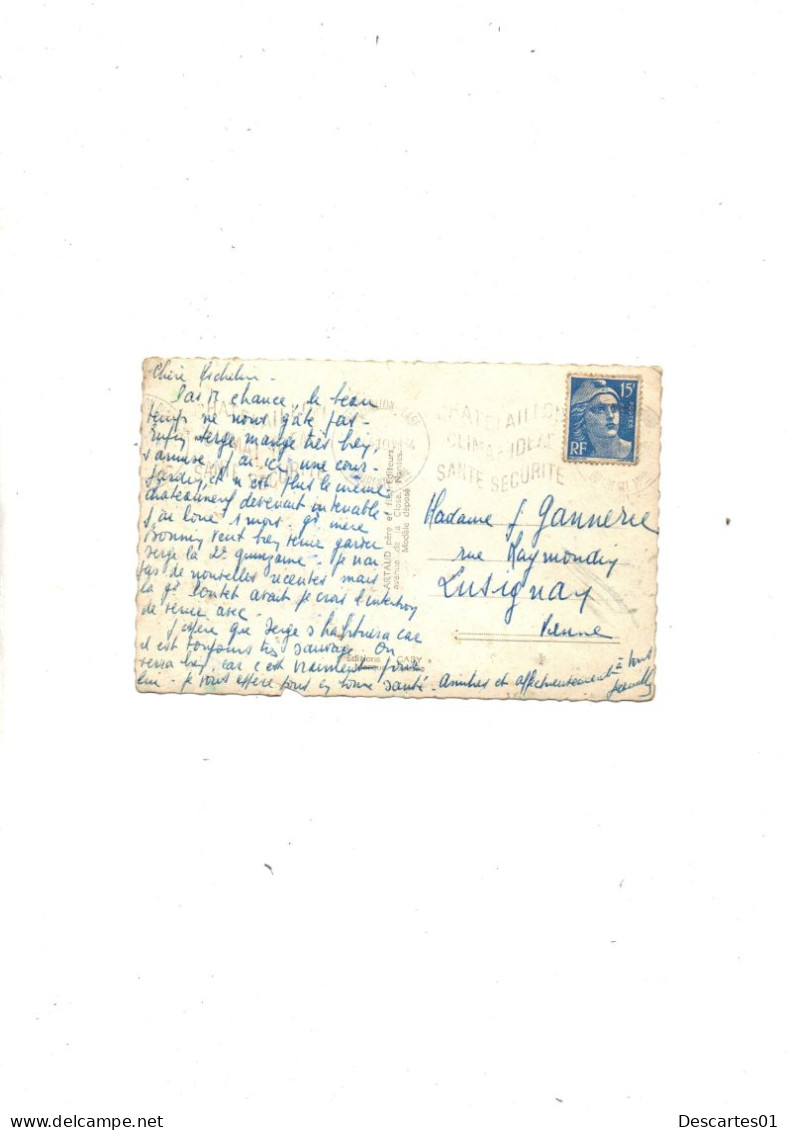 Chère
Pas de chance, le beau
temps ne nous gâte pas.
Enfin Serge mange très bien,
s'amuse. J'ai ici une cous-
et n'est plus le même
chateauneuf devenant intenable
J'ai loué 1 mois. gd mère
Bonnin vient bien tenir garder
Serge la 2e quinzaine. Je n'ai
pas de nouvelles récentes mais
la gd avait je crois l'intention
de venir avec.
J'espère que Serge s'habituera car
il est toujours très sauvage. On
verra bien, car c'est vraiment pour
lui. Je vous espère tous en bonne santé. Amitiés et affectueusement à tous
ARTAUD père et fils, Editeurs
avenue de la Close, Nantes.
Modèle déposé
Editions GABY
CHATELAILLON
CLIMAT IDEAL
SANTE SECURITE
15F
POSTES
RF
Madame J. Gannerie
rue Raymondin
Lusignan
Vienne
Descartes01